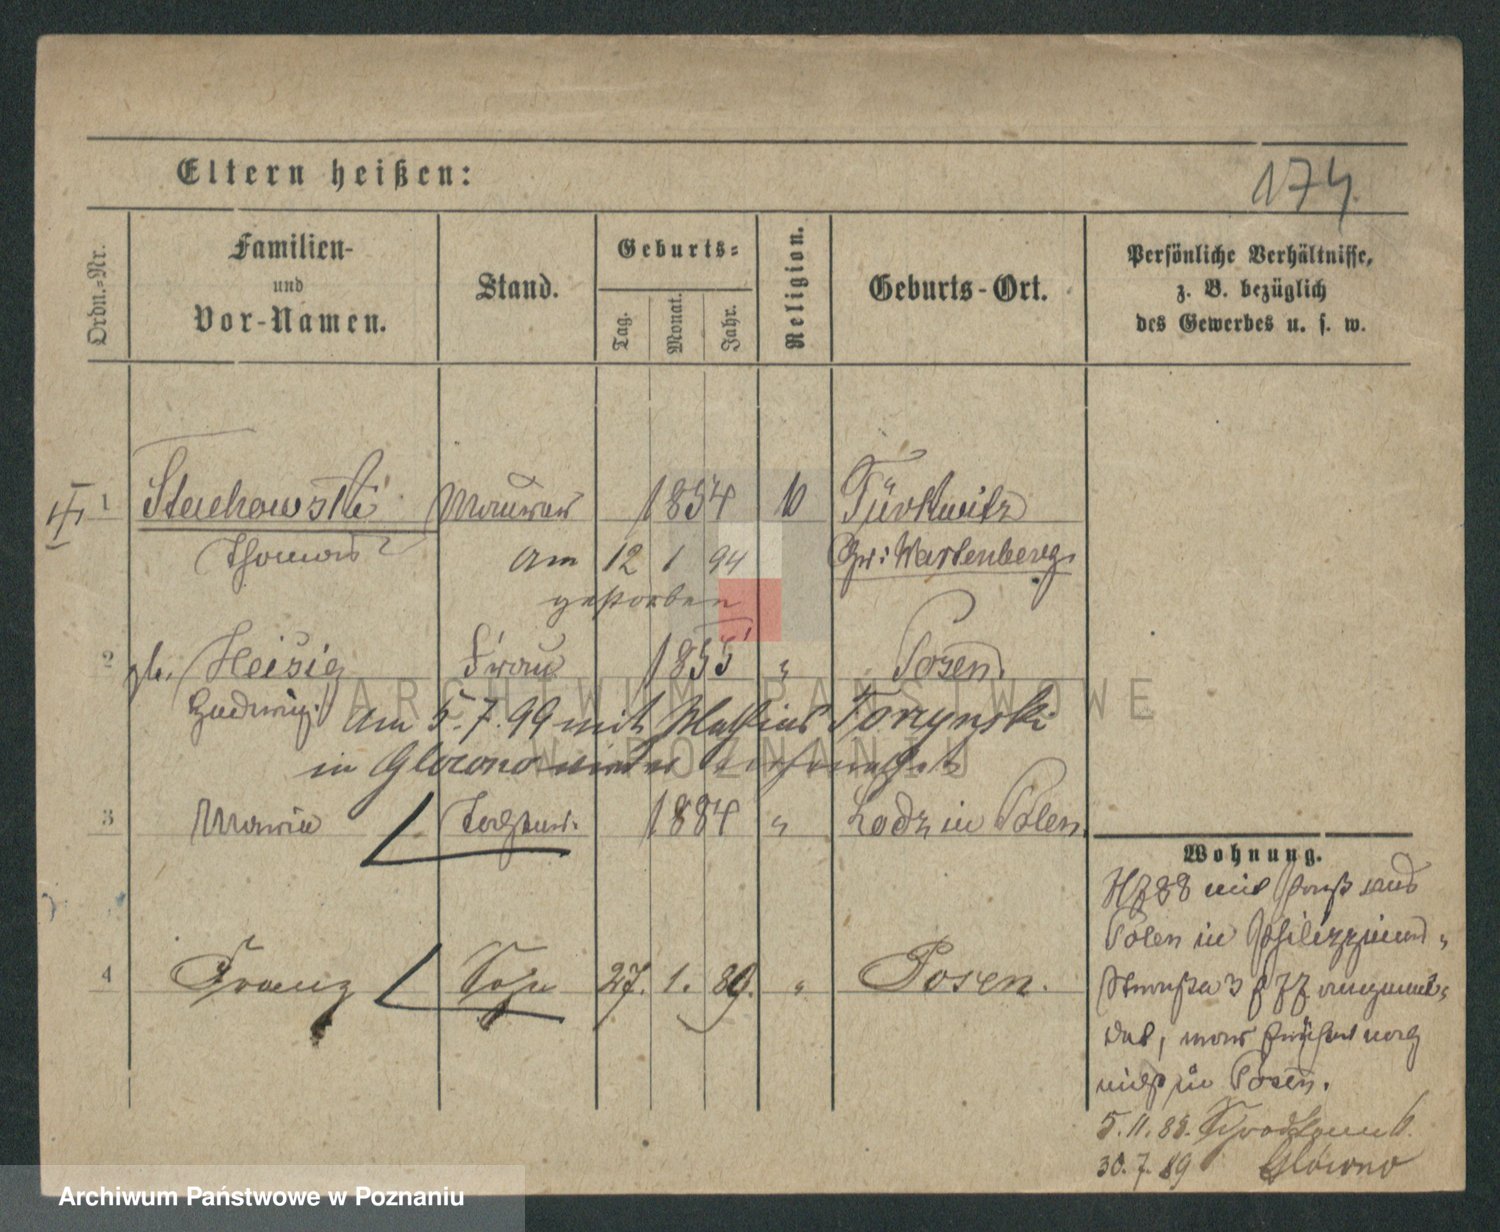 Eltern heißen:
174.
Ordn.-Nr.
Familien-
und
Vor-Namen.
Stand.
Geburts-
Tag.
Monat.
Jahr.
Religion.
Geburts-Ort.
Persönliche Verhältnisse,
z. B. bezüglich
des Gewerbes u. s. w.
1 Stachowski Maurer 1854 Türkwitz
Thomas am 12 1 94 Gr: Wartenberg.
gestorben
2 gb. Heisig Frau 1855 " Posen.
Hedwig. am 5.7.99 mit Mathias Torzynski
in Glowno wieder verheirathet
3 Maria Tochter. 1884 " Lodz in Polen.
4 Franz Sohn 27. 1. 89. " Posen.
Wohnung.
88 mit aus
Polen in
Straße 3
det, war früher noch
nicht in Posen.
5.11.89.
30.7.89 Glowno
ARCHIWUM PAŃSTWOWE
W POZNANIU
Archiwum Państwowe w Poznaniu